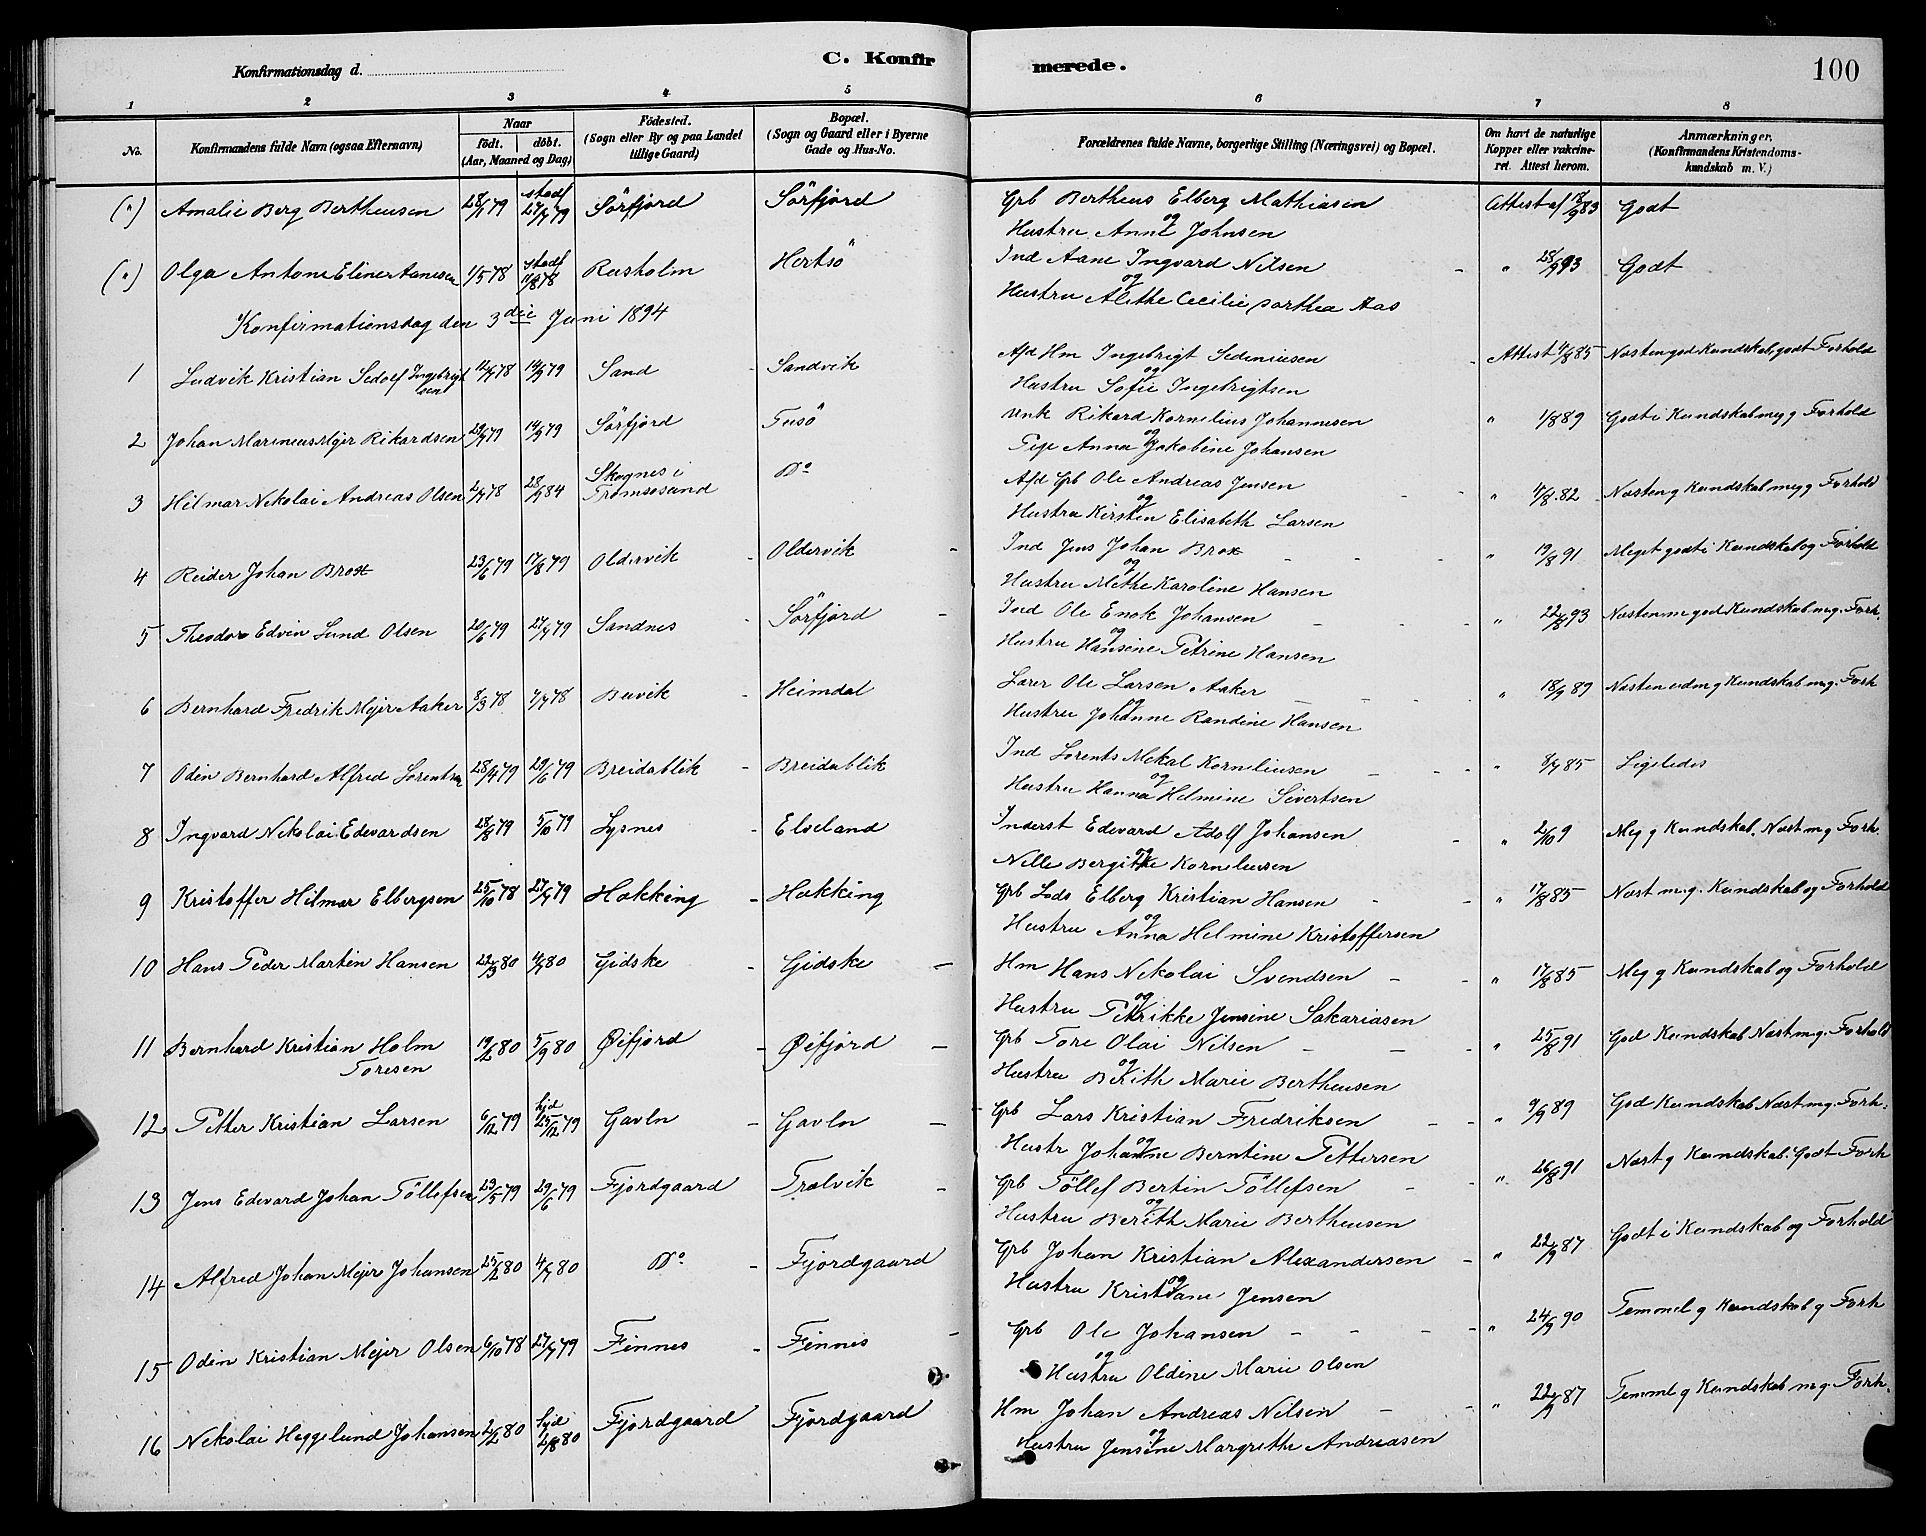 C. Konfirmerede.
100
Konfirmationsdag d.
1 2 3 4 5 6 7 8
No.
Konfirmandens fulde Navn (ogsaa Efternavn)
Naar
födt. döbt.
(Aar, Maaned og Dag)
Födested.
(Sogn eller By og paa Landet
tillige Gaard)
Bopæl.
(Sogn og Gaard eller i Byerne
Gade og Hus-No.
Forældrenes fulde Navne, borgerlige Stilling (Næringsvei) og Bopæl.
Om havt de naturlige
Kopper eller vakcine-
ret. Attest herom.
Anmærkninger.
(Konfirmandens Kristendoms-
kundskab m. V.)
(") Amalie Berg Bertheusen 28/1 79 stadf 27/7 79 Sörfjord Sörfjord Grb Bertheus Elberg Mathiasen Attest af 18/9 83 Godt
og
Hustru Anne Johnsen
(") Olga Antone Eline Aanesen 1/5 78 stadf 11/8 78 Rusholm Hertsö Ind Aane Ingvard Nilsen " 28/9 93 Godt
og
Hustru Alethe Cecilie Dorthea Aas
Konfirmationsdag den 3die Juni 1894
1 Ludvik Kristian Sedolf Ingebrigt
sen 12/7 78 14/9 79 Sand Sandvik Afd Hm Ingebrigt Sedeniusen Attest 4/8 85 Næsten god Kundskab, godt Forhold
og
Hustru Sofie Ingebrigtsen
2 Johan Marineus Mejer Rikardsen 29/7 79 14/9 79 Sörfjord Tusö Unk Rikard Kornelius Johannesen " 1/8 89 Godt i Kundskab meg g Forhold
og
Pige Anna Jakobine Johansen
3 Hilmar Nekolai Andreas Olsen 2/7 78 28/9 84 Skognes i
Tromsøsund Do Afd Grb Ole Andreas Jensen " 4/8 82 Næsten g Kundskab meg g Forhold
og
Hustru Kirsten Elisabeth Larsen
4 Reider Johan Brox 23/6 79 17/8 79 Oldervik Oldervik Ind Jens Johan Brox " 19/8 91 Meget godt i Kundskab og Forhold
og
Hustru Methe Karoline Hansen
5 Theodor Edvin Lund Olsen 20/6 79 27/7 79 Sandnes Sörfjord Ind Ole Enok Johansen " 22/8 93 Næsten m god Kundskab meg. Forh.
og
Hustru Hansine Petrine Hansen
6 Bernhard Fredrik Mejer Aaker 8/3 78 7/7 78 Buvik Heimdal Lærer Ole Larsen Aaker " 18/9 89 Næsten udm g Kundskab meg. Forh
og
Hustru Johanne Randine Hansen
7 Odin Bernhard Alfred Lorentsen 28/4 79 29/6 79 Breidablik Breidablik Ind Lorents Mekal Korneliusen " 8/7 85 Ligeledes
og
Hustru Hanna Helmine Sivertsen
8 Ingvard Nekolai Edvardsen 28/8 79 5/10 79 Lysnes Elveland Inderst Edevard Adolf Johansen " 2/10 9 Meg g Kundskab. Næst m g Forh.
og
Nelle Bergitte Korneliusen
9 Kristoffer Hilmar Elbergsen 25/10 78 27/7 79 Hækking Hækking Grb Lods Elberg Kristian Hansen " 17/8 85 Næst m. g. Kundskab og Forhold
og
Hustru Anna Helmine Kristoffersen
10 Hans Peder Martin Hansen 22/3 80 4/7 80 Gidske Gidske Hm Hans Nekolai Svendsen " 17/8 85 Meg g Kundskab og Forhold
og
Hustru Petrikke Jensine Sakariasen
11 Bernhard Kristian Holm
Toresen 19/6 80 5/9 80 Øifjord Øifjord Grb Tore Olai Nilsen " 25/8 91 God Kundskab Næst m g. Forhold
og
Hustru Berith Marie Bertheusen
12 Petter Kristian Larsen 6/12 79 hjd 25/12 79 Gavln Gavln Grb Lars Kristian Fredriksen " 9/9 89 God Kundskab Næst m g. Forh.
og
Hustr Johanne Berntine Pettersen
13 Jens Edevard Johan Töllefsen 23/5 79 29/6 79 Fjordgaard Trælvik Grb Töllef Bertin Töllefsen " 26/8 91 Næst g Kundskab. Godt Forh
og
Hustru Berith Marie Bertheusen
14 Alfred Johan Mejer Johansen 25/2 80 4/7 80 Do Fjordgaard Grb Johan Kristian Alexandersen " 22/9 87 Godt i Kundskab og Forhold
og
Hustru Kristiane Jensen
15 Odin Kristian Mejer Olsen 6/10 78 27/7 79 Finnes Finnes Grb Ole Johansen " 24/9 90 Temmel g Kundskab g Forh
og
Hustru Oldine Marie Olsen
16 Nekolai Heggelund Johansen 2/2 80 hjd 2/8 80 Fjordgaard Fjordgaard Hm Johan Andreas Nilsen " 22/9 87 Temml g Kundskab m g. Forh.
og
Hustru Jensine Margrethe Andreasen